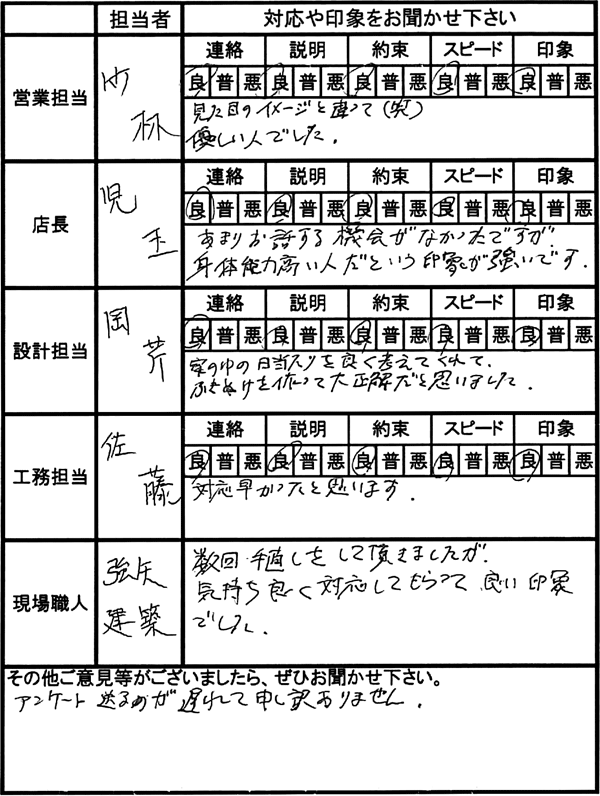 担当者 対応や印象をお聞かせ下さい
営業担当
竹林
連絡 説明 約束 スピード 印象
良 普 悪 良 普 悪 良 普 悪 良 普 悪 良 普 悪
見た目のイメージと違って(笑)
優しい人でした.
店長
児玉
連絡 説明 約束 スピード 印象
良 普 悪 良 普 悪 良 普 悪 良 普 悪 良 普 悪
あまりお話する機会がなかったですが.
身体能力高い人だという印象が強いです.
設計担当
岡芹
連絡 説明 約束 スピード 印象
良 普 悪 良 普 悪 良 普 悪 良 普 悪 良 普 悪
家の中の日当たりを良く考えてくれて.
ふきぬけを作って大正解だと思いました.
工務担当
佐藤
連絡 説明 約束 スピード 印象
良 普 悪 良 普 悪 良 普 悪 良 普 悪 良 普 悪
対応早かったと思います.
現場職人
強矢
建築
数回手直しをして頂きましたが.
気持ち良く対応してもらって良い印象
でした.
その他ご意見等がございましたら、ぜひお聞かせ下さい。
アンケート送るのが遅れて申し訳ありません.